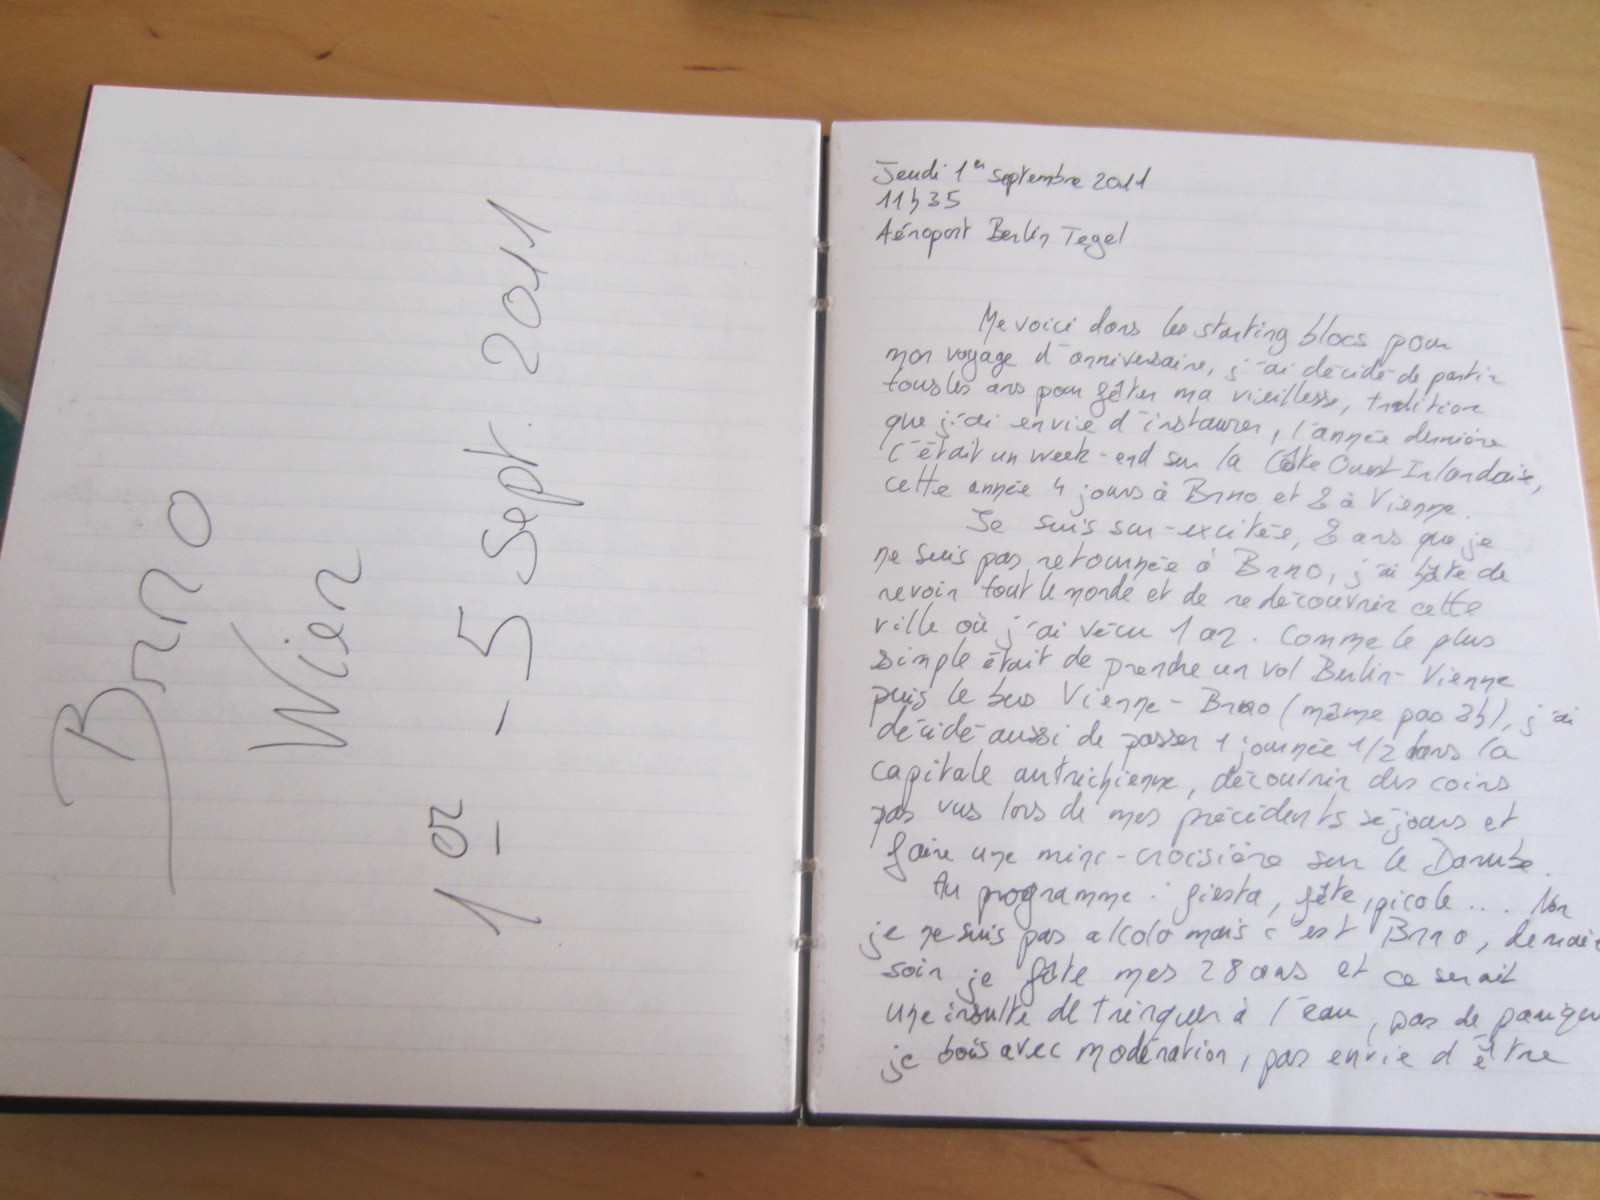 Brno
Wien
1er - 5 Sept. 2011
Jeudi 1er septembre 2011
11h35
Aéroport Berlin Tegel
Me voici dans les starting blocs pour
mon voyage d'anniversaire, j'ai décidé de partir
tous les ans pour fêter ma vieillesse, tradition
que j'ai envie d'instaurer, l'année dernière
c'était un week-end sur la Côte Ouest Irlandaise,
cette année 4 jours à Brno et 2 à Vienne.
Je suis sur-excitée, 2 ans que je
ne suis pas retournée à Brno, j'ai hâte de
revoir tout le monde et de redécouvrir cette
ville où j'ai vécu 1 an. Comme le plus
simple était de prendre un vol Berlin-Vienne
puis le bus Vienne-Brno (même pas 2h), j'ai
décidé aussi de passer 1 journée 1/2 dans la
capitale autrichienne, découvrir des coins
pas vus lors de mes précédents séjours et
faire une mini-croisière sur le Danube.
Au programme : fiesta, fête, picole... Non
je ne suis pas alcolo mais c'est Brno, demain
soir je fête mes 28 ans et ce serait
une insulte de trinquer à l'eau, pas de panique
je bois avec modération, pas envie d'être